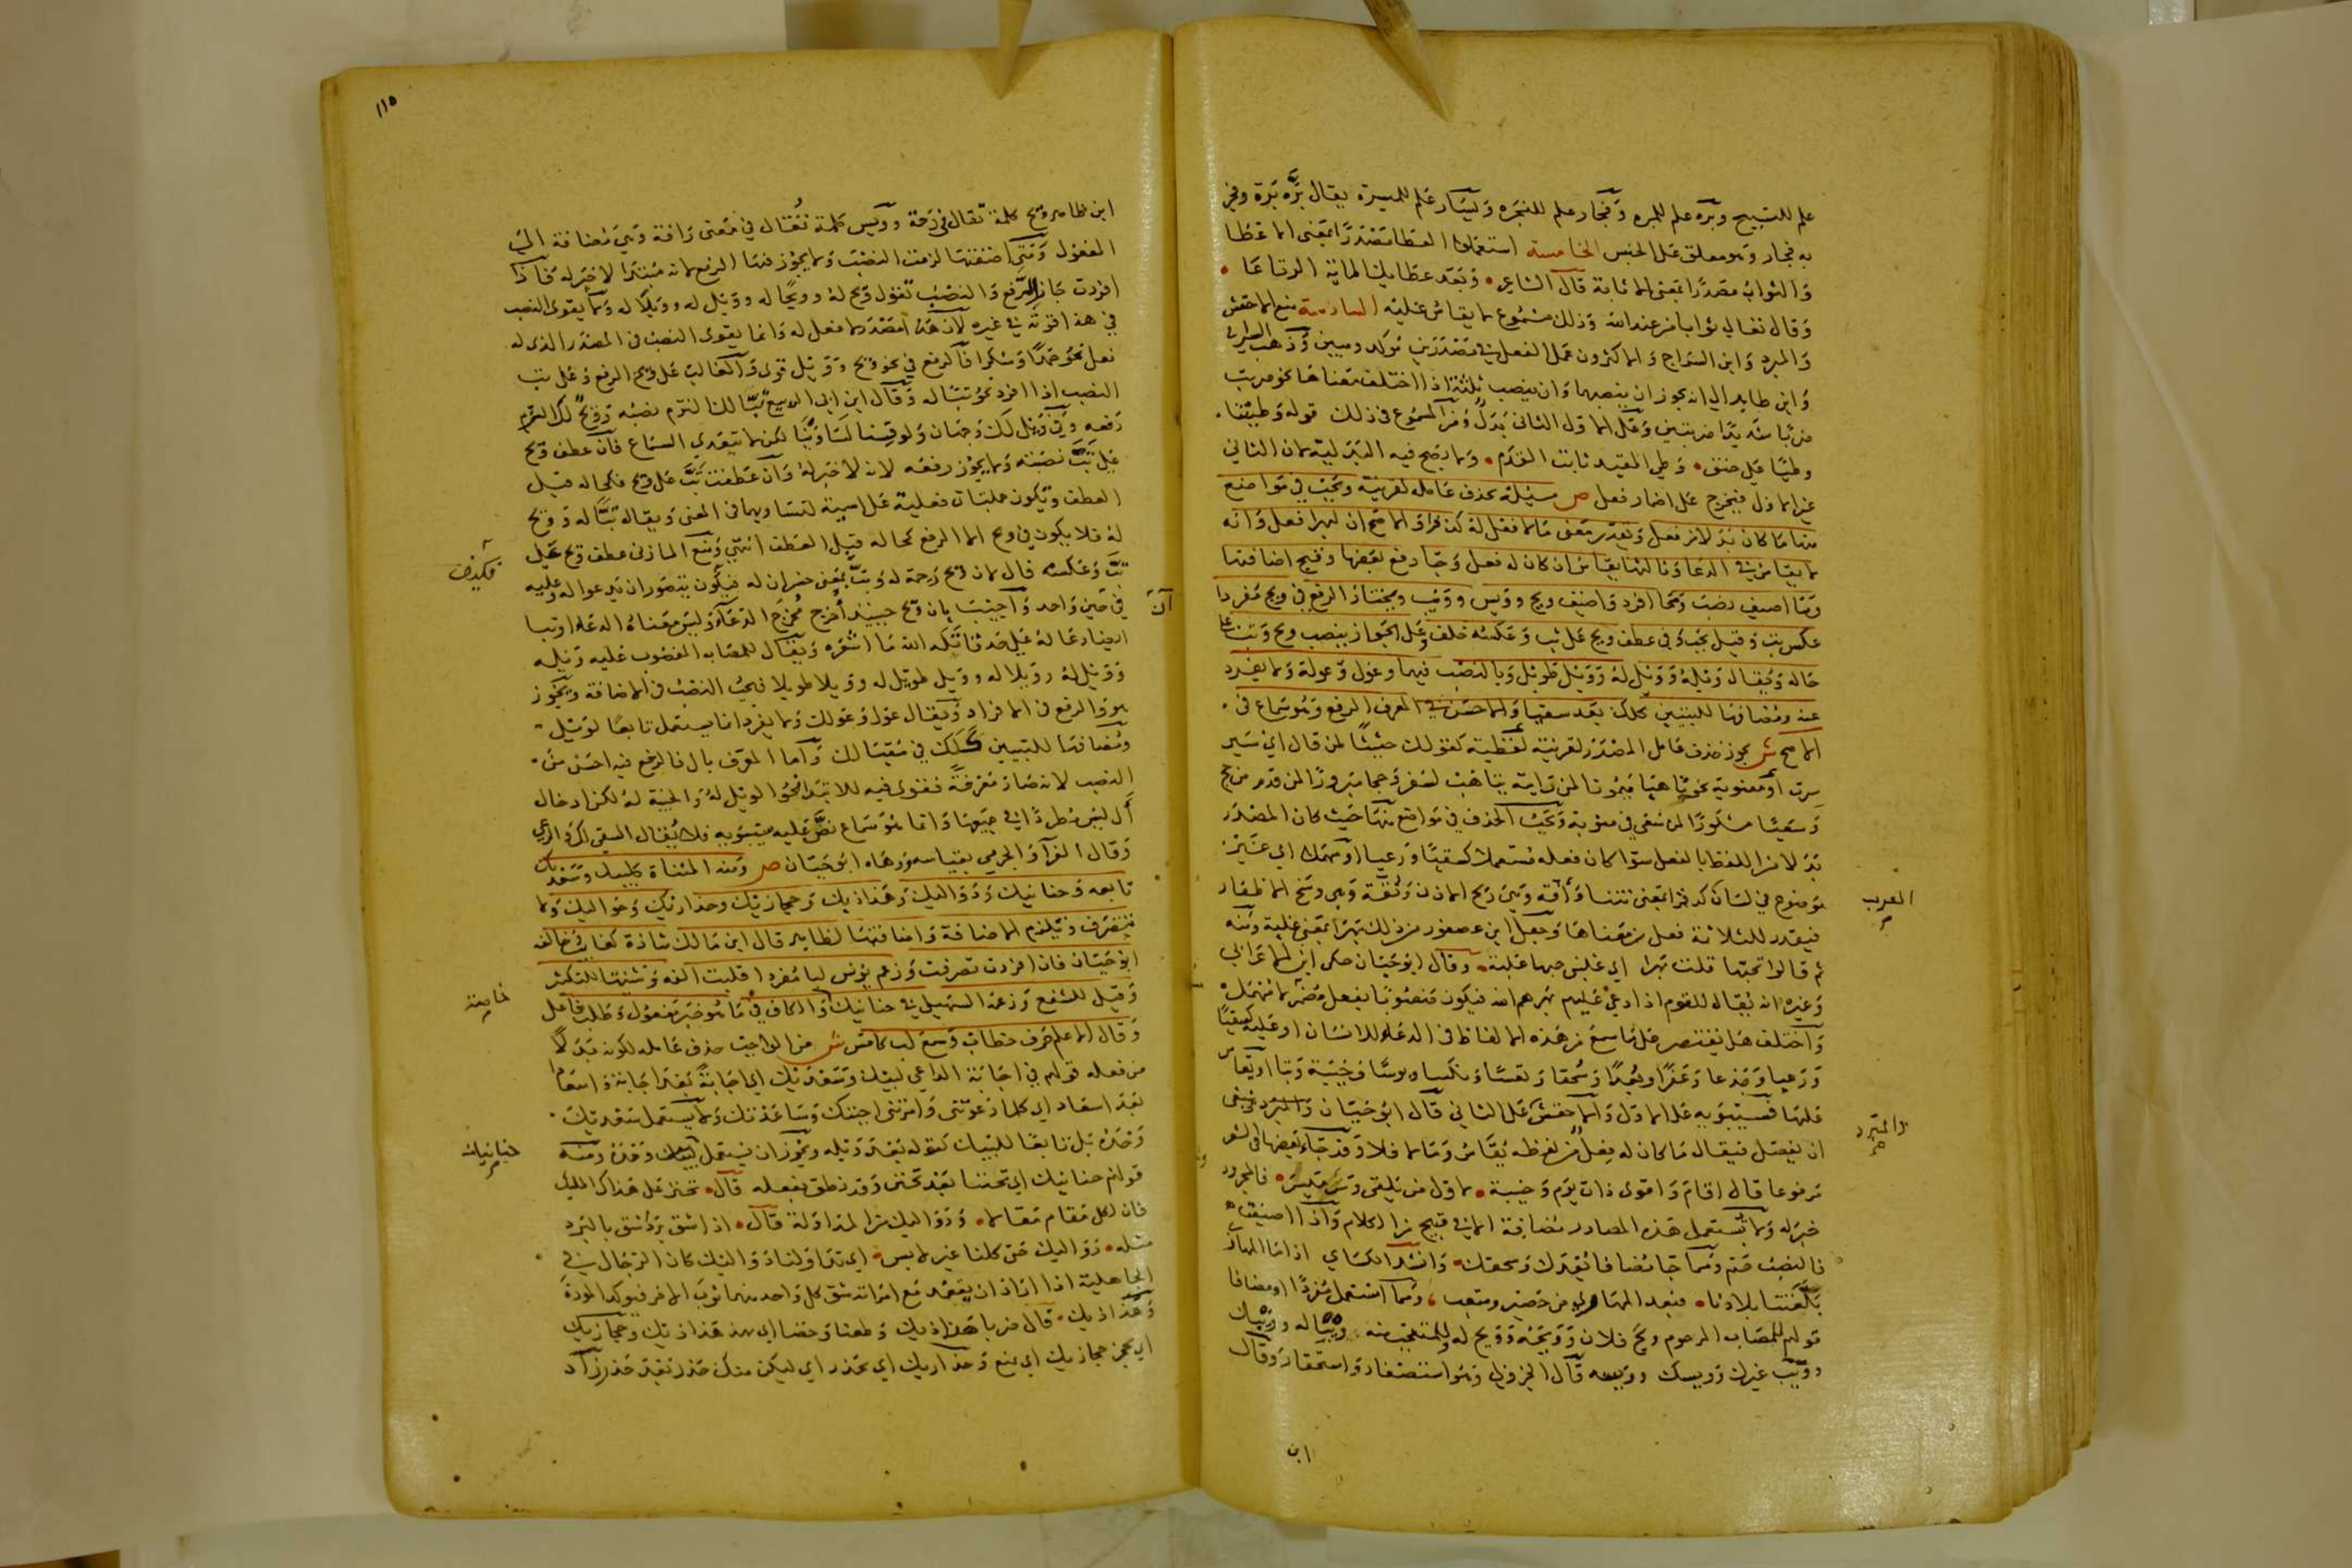 علم للتسبيح وبره علم للمبره وفجار علم للفجره ويسار علم للميسرة يقال بره برة وفجر
به فجار وهو معلق على الجنس الخامسة استعملوا العطا مصدرا بمعنى الاعطا
والثواب مصدرا بمعنى الاثابة قال الشاعر وبعد عطايك المائة الرتاعا
وقال تعالى ثوابا من عند الله وذلك مسموع لا يقاس عليه السادسة منع الاخفش
والمبرد وابن السراج والاكثرون عمل الفعل في مصدرين مؤكد ومبين وذهب السيرافي
وابن طاهر الى انه يجوز ان ينصبهما وان ينصب ثلثة اذا اختلف معناها نحو ضربت
ضربا شديدا ضربتين وعلى الاول الثاني بدل ومن المسموع في ذلك قوله وطيتنا
وطيا على حنق وطي المقيد ثابت القدم ولا يصح فيه البدلية لان الثاني
غير الاول فيخرج على اضمار فعل ص مسئلة يحذف عامله لقرينة ويجب في مواضع
منها ما كان بدلا من فعل ويقدر معنى ما لا فعل له كدفرا والاصح ان لبهرا فعل وانه
لا يقاس في الدعا وثالثها يقاس ان كان له فعل وجا رفع بعضها وقبح اضافتها
ومتا اضيف نصب ومما افرد واضيف ويح وويس وويب ويختار الرفع في ويح مفردا
عكس تب وقيل يجب وفي عطف ويح على تب وعكسه خلف وعلى الجواز ينصب ويح وتب على
حاله ويقال ويله وويل له وويل طويل وبالنصب فيهما وعول وعولة ولا يفرد
عنه ومضافها للتبيين كلك بعد سقيا والاحسن في المعرف الرفع وهو سماع في
الاصح ش يجوز حذف عامل المصدر لقرينة لفظية كقولك حثيثا لمن قال اي سير
سرت او معنوية نحو تاهبا ميمونا لمن رايته يتاهب لسفر وحجا مبرورا لمن قدم من حج
وسعيا مشكورا لمن سعى في مثوبة ويجب الحذف في مواضع منها حيث كان المصدر
بدلا من اللفظ بالفعل سوا كان فعله مستعملا كسقيا ورعيا او مهملا اي غير
موضوع في لسان كدفرا بمعنى نتنا وافة وهي ريح الاذن وتفة وهي وسخ الاظفار
العرب صح
فيقدر للثلاثة فعل من معناها وجعل ابن عصفور من ذلك بهرا بمعنى غلبة ومنه
ثم قالوا تحبها قلت بهرا اي غلبني حبها غلبة وقال ابو حيان حكى ابن الاعرابي
وغيره انه يقال للقوم اذا دعي عليهم بهرهم الله فيكون منصوبا بفعل مضمر لا مهمل
واختلف هل يقتصر على ما سمع من هذه الالفاظ في الدعاء للانسان او عليه كسقيا
ورعيا وجدعا وعقرا وبعدا وسحقا وتعسا ونكسا وبوسا وخيبة وتبا او يقاس
عليها فسيبويه على الاول والاخفش على الثاني قال ابو حيان والمبرد ينبغي
والمبرد صح
ان يفصل فيقال ما كان له فعل من لفظه يقاس وما لا فلا وقد جاء بعضها في الشعر
مرفوعا قال اقام واقوى ذات يوم وخيبة لاول من يلقى وشر ميسر فالمجرور
خبر له ولا تستعمل هذه المصادر مضافة الا في قبيح من الكلام واذا اضيفت
فالنصب حتم ومما جا مضافا بعدك وسحقك وانشد الكساي اذا ما المهارى
بلغتنا بلادنا فبعد المهارى من حسير ومتعب ومما استعمل مفردا او مضافا
قولهم للمصاب المرحوم ويح فلان وويحه وويح له وللمتعجب منه ويبا له وويبك
وويب غيرك وويسك وويسه قال الجزولي وهو استصغار واستحقار وقال
ابن
١١٥
ابن طاهر ويح كلمة تقال في رحمة وويس كلمة تقال في معنى رافة وهي مضافة الى
المفعول ومتى اضفتها لزمت النصب ولا يجوز فيها الرفع لانه مبتدا لا خبر له فاذا
افردت جاز الرفع والنصب تقول ويح له وويحا له وويل له وويلا له ولا يقوى النصب
في هذا قوته في غيره لان هذا مصدر لا فعل له وانما يقوى النصب في المصدر الذي له
فعل نحو حمدا وشكرا فالرفع في نحو ويح وويل قوى والغالب على ويح الرفع وعلى تب
النصب اذا افرد نحو تبا له وقال ابن ابي الربيع تبا لك التزم نصبه وويح لك التزم
رفعه وفي ويل لك وجهان ولو قسنا لساوينا لكن لا يتعدى السماع فان عطف ويح
على تب نصبته ولا يجوز رفعه لانه لا خبر له وان عطفت تب على ويح فكحاله قبل
العطف ويكون جملتان فعلية على اسمية لتساويهما في المعنى ويقال تبا له وويح
له فلا يكون في ويح الا الرفع كحاله قبل العطف انتهى ومنع المازني عطف ويح على
فيكون
تب وعكسه قال لان ويح رحمة له وتب بمعنى خسران له فيكون يتصور ان يدعو اله وعليه
في حين واحد واجيب بان ويح حينئذ اخرج مخرج الدعاء وليس معناه الدعاء او تبا
ان
ايضا دعا له على حد قاتله الله ما اشعره ويقال للمصاب المغضوب عليه ويله
وويل له وويلا له وويل طويل له وويلا طويلا فيجب النصب في الاضافة ويجوز
هو والرفع في الافراد ويقال عول وعولك ولا يفرد انما يستعمل تابعا لويل
ومضافها للتبيين كلك في سقيا لك واما المعرف بال فالرفع فيه احسن من
النصب لانه صار معرفة فقوى فيه للابتدا نحو الويل له والخيبة له لكن ادخال
ال ليس مطردا في جميعها وانما هو سماع نص عليه سيبويه فلا يقال السقى لك والرعي
وقال الفراء والجرمي بقياسه ورهاه ابو حيان ص ومنه المثناة كلبيك وسعديك
تابعه وحنانيك ودواليك وهذاذيك وحجازيك وحذاريك وحواليك ولا
تتصرف ويلزم الاضافة واضافتها لظاهر قال ابن مالك شاذة كغائب خالفه
ابو حيان فان افردت تصرفت وزعم يونس لبا مفردا قلبت الفه وتثنيتها للتكثير
وقيل للشفع وزعم السهيلي في حنانيك والكاف في ما هو خبر مفعول وطلب فاعل
خاصة صح
وقال الاعلم حرف خطاب وسمع لب كامس ش من الواجب حذف عامله لكونه بدلا
من فعله قولهم في اجابة الداعي لبيك وسعديك اي اجابة بعد اجابة واسعادا
بعد اسعاد اي كلما دعوتني وامرتني اجبتك وساعدتك ولا يستعمل سعديك
وحده بل تابعا للبيك كعوله بعد ويله ويجوز ان يستعمل لبيك وحده ومنه
حنانيك صح
قولهم حنانيك اي تحننا بعد تحنن وقد نطق بفعله قال تحنن على هداك المليك
فان لكل مقام مقالا ودواليك من المداولة قال اذا شق برد شق بالبرد
مثله دواليك حتى كلنا غير لابس اي تداولنا دواليك كان الرجال في
الجاهلية اذا اراد ان يقعد مع امراته شق كل واحد منهما ثوب الاخر فيوكد المودة
وهذاذيك قال ضربا هذاذيك وطعنا وخضا اي هذ هذاذيك وحجازيك
اي حجز حجازيك اي يمنع وحذاريك اي تحذر اي ليكن منك حذر بعد حذر زاد